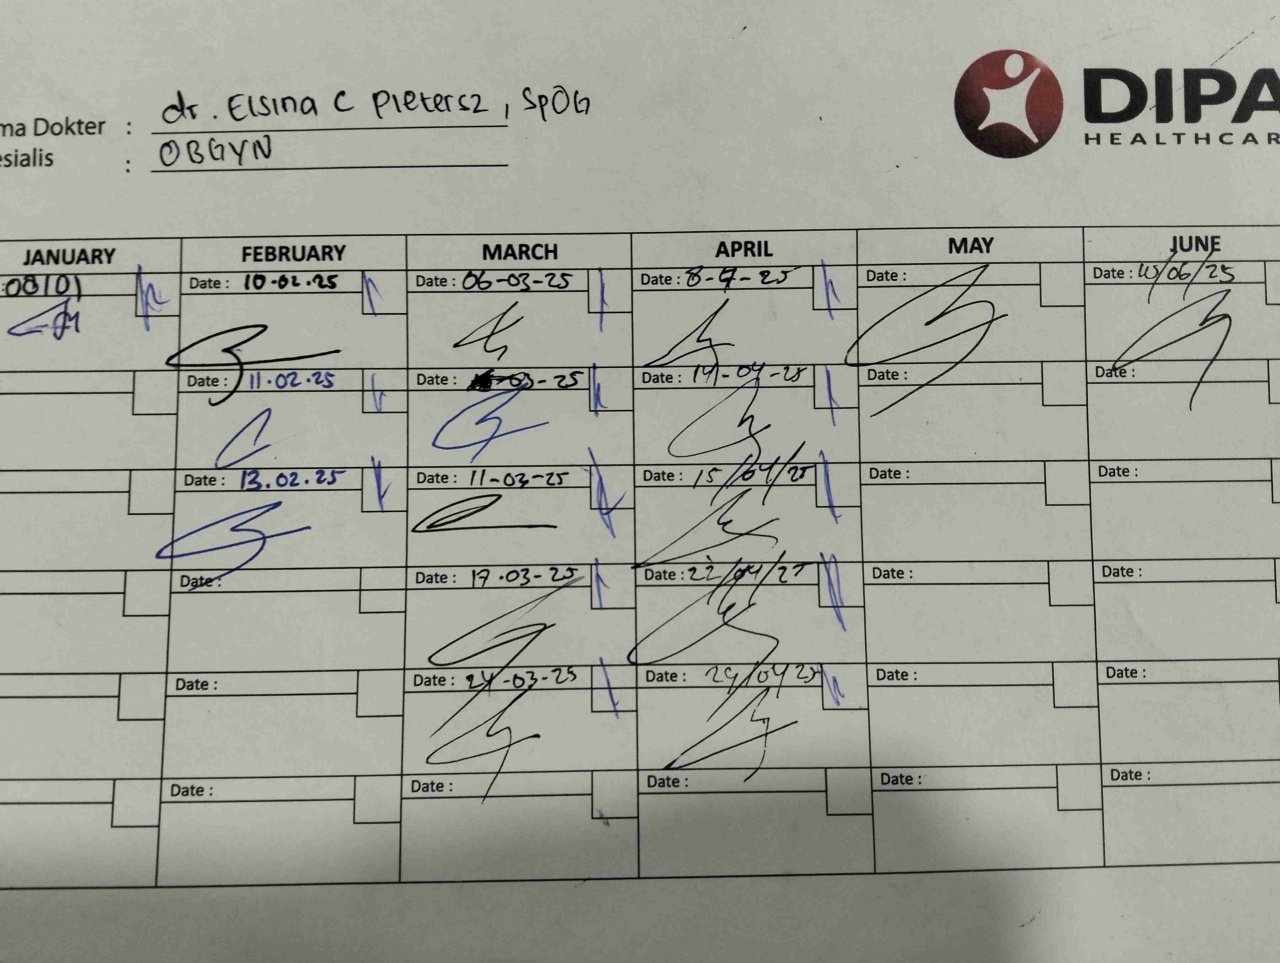 dr. Elsina C Pietersz, SpOG
ma Dokter :
esialis : OBGYN
DIPA
HEALTHCAR
JANUARY FEBRUARY MARCH APRIL MAY JUNE
: 08/01 Date : 10.02.25 Date : 06-03-25 Date : 8-4-25 Date : Date : /06/25
Date : 11.02.25 Date : -03-25 Date : 14-04-25 Date : Date :
Date : 13.02.25 Date : 11-03-25 Date : 15/04/25 Date : Date :
Date : Date : 17.03-25 Date : 22/04/25 Date : Date :
Date : Date : 24-03-25 Date : 29/04 25 Date : Date :
Date : Date : Date : Date : Date :